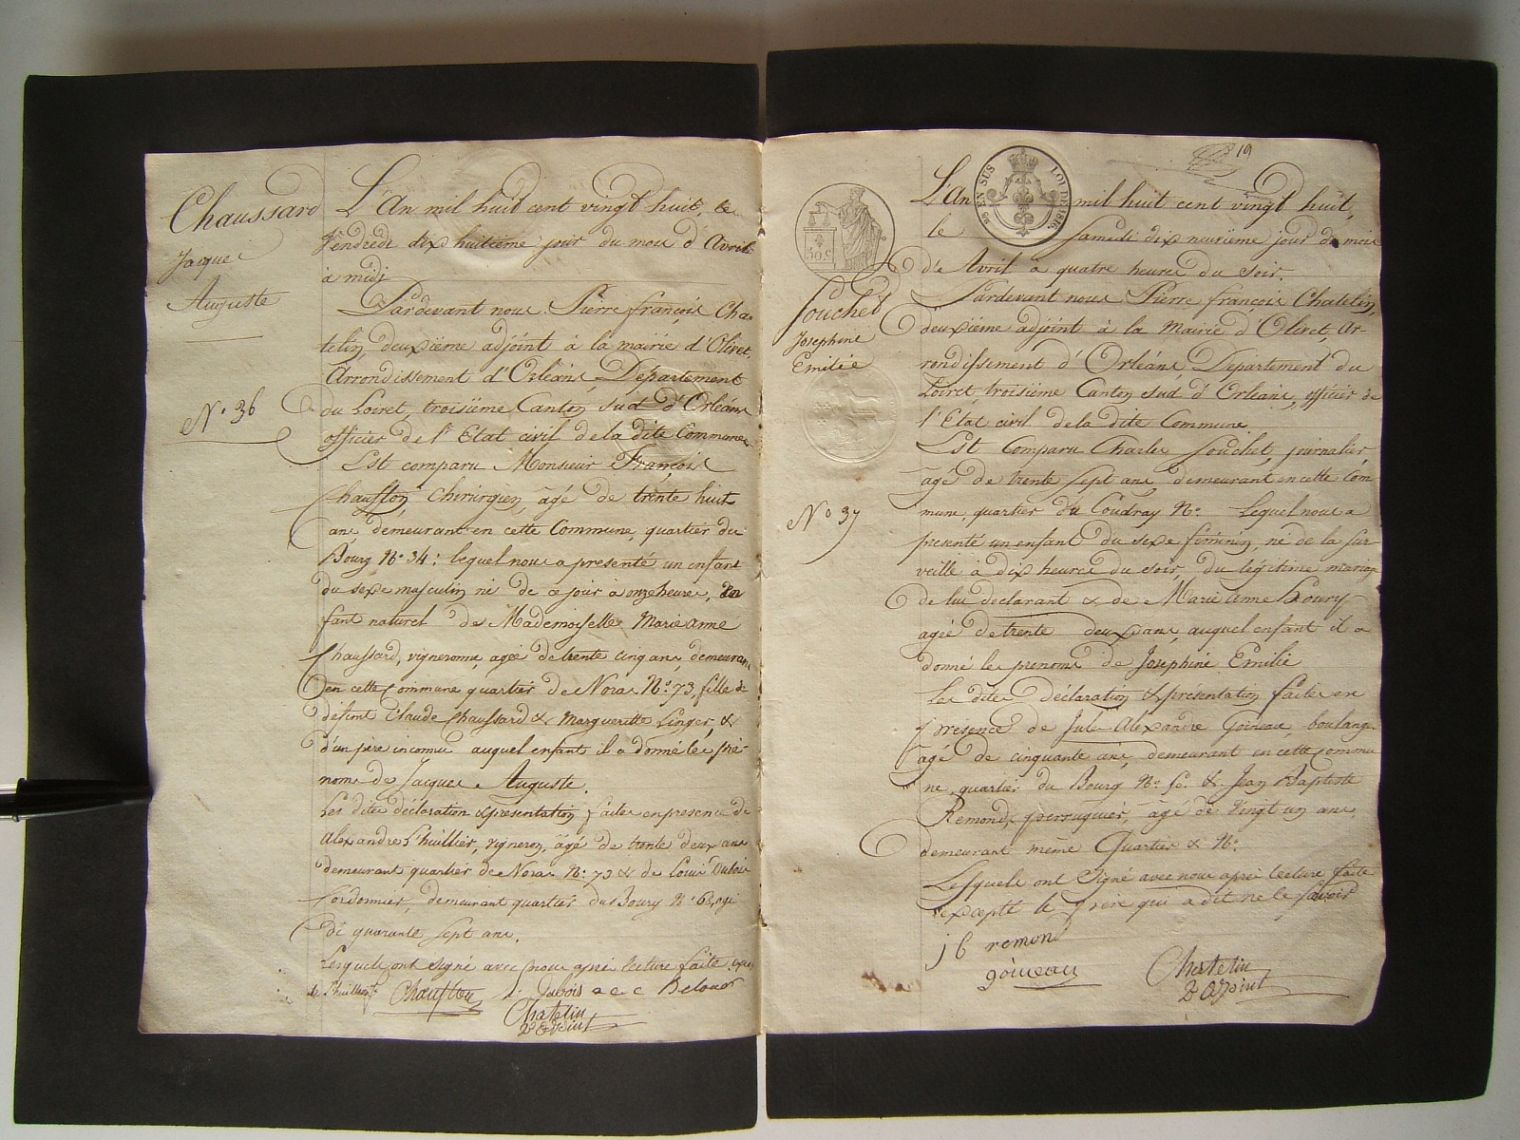 Chaussard
Jacques
Auguste
N° 36
L'An mil huit cent vingt huit, le
Vendredi dix huitième jour du mois d'Avril
à midi
Pardevant nous Pierre françois Cha-
telin, deuxième adjoint à la mairie d'Olivet,
Arrondissement d'Orléans Département
du Loiret, troisième Canton sud d'Orléans
officier de l'Etat civil de la dite Commune
Est comparu Monsieur François
Chaufton, chirurgien, âgé de trente huit
ans, demeurant en cette Commune, quartier du
Bourg N° 34; lequel nous a presenté un enfant
du sexe masculin né de ce jour à onze heures, En
fant naturel de Mademoiselle Marie anne
Chaussard, vigneronne, agée de trente cinq ans, demeurant
en cette Commune quartier de Noras N° 73, fille de
défunt Claude Chaussard & Margueritte Linger, &
d'un père inconnu auquel enfant il a donné les pré-
noms de Jacques Auguste.
Les dites déclaration & presentation faites en presence de
Alexandre Lhuillier, vigneron, âgé de trente deux ans
demeurant quartier de Noras N° 73 & de Louis Dubois
Cordonnier, demeurant quartier du Bourg N° 62, agé
de quarante sept ans.
Lesquels ont signé avec nous après lecture faite
Chaufton L. Dubois
Chatelin
2e adjoint
19
EN SUS LOI DE 1816
50 c
Souchet
Josephine
Emilie
N° 37
L'An mil huit cent vingt huit,
le Samedi dix neuvième jour du mois
d'Avril à quatre heures du soir.
Pardevant nous Pierre françois Chatelin,
deuxième adjoint à la Mairie d'Olivet, Ar-
rondissement d'Orléans, Département du
Loiret, troisième Canton sud d'Orléans, officier de
l'Etat civil de la dite Commune.
Est Comparu Charles Souchet, journalier
âgé de trente sept ans, demeurant en cette Com
mune, quartier du Coudray N° Lequel nous a
presenté un enfant du sexe féminin, né de la sur
veille à dix heures du soir, du légitime mariage
de lui déclarant & de Marie Anne Houry
agée de trente deux ans, auquel enfant il a
donné les prenoms de Josephine Emilie
Les dites Déclaration & presentation faites en
présence de Jules Alexandre Goineau, boulanger
âgé de cinquante ans, demeurant en cette Commu
ne, quartier du Bourg N° & Jean Baptiste
Remond, perruquier, âgé de vingt un ans,
demeurant même Quartier & N°
Lesquels ont signé avec nous après lecture faite
excepté le père qui a dit ne le savoir
j b remon
goineau
Chatelin
2e adjoint